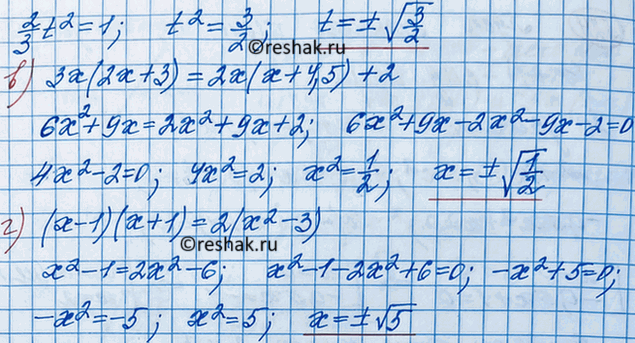 2/3 t² = 1; t² = 3/2; t = ± √(3/2)
©reshak.ru
в) 3x(2x+3) = 2x(x+4,5) + 2
6x² + 9x = 2x² + 9x + 2; 6x² + 9x - 2x² - 9x - 2 = 0
4x² - 2 = 0; 4x² = 2; x² = 1/2; x = ± √(1/2)
г) (x-1)(x+1) = 2(x² - 3)
©reshak.ru
x² - 1 = 2x² - 6; x² - 1 - 2x² + 6 = 0; -x² + 5 = 0;
-x² = -5; x² = 5; x = ± √5